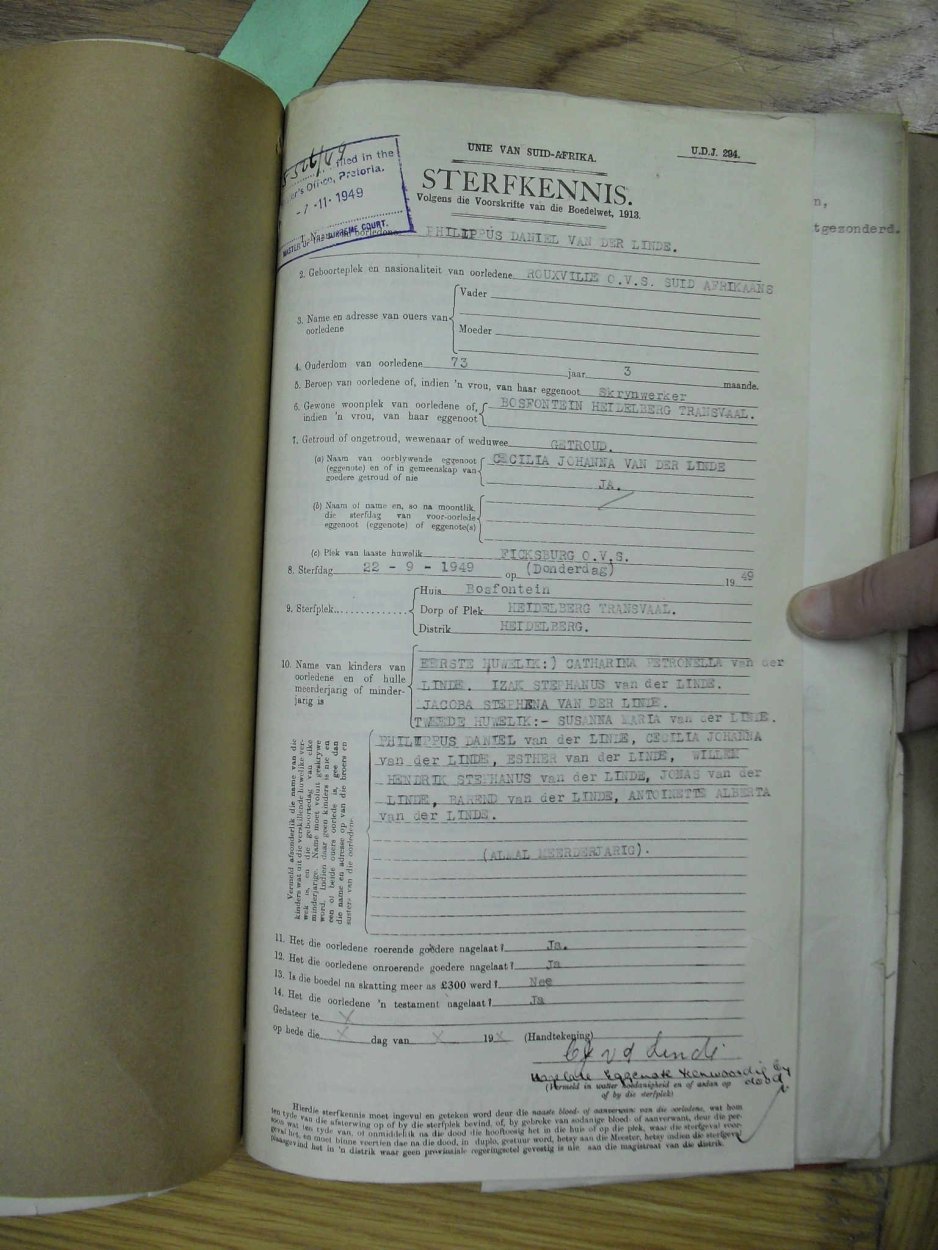 UNIE VAN SUID-AFRIKA.
U.D.J. 294.
STERFKENNIS.
Volgens die Voorskrifte van die Boedelwet, 1913.
filed in the
Office, Pretoria.
-7-11-1949
MASTER OF THE SUPREME COURT.
oorledene PHILIPPUS DANIEL VAN DER LINDE.
n,
tgesonderd.
2. Geboorteplek en nasionaliteit van oorledene ROUXVILLE O.V.S. SUID AFRIKAANS
3. Name en adresse van ouers van oorledene
Vader
Moeder
4. Ouderdom van oorledene 73 jaar 3 maande.
5. Beroep van oorledene of, indien 'n vrou, van haar eggenoot Skrynwerker
6. Gewone woonplek van oorledene of, indien 'n vrou, van haar eggenoot BOSFONTEIN HEIDELBERG TRANSVAAL.
7. Getroud of ongetroud, wewenaar of weduwee GETROUD.
(a) Naam van oorblywende eggenoot (eggenote) en of in gemeenskap van goedere getroud of nie
CECILIA JOHANNA VAN DER LINDE
JA.
(b) Naam of name en, so na moontlik, die sterfdag van voor-oorlede eggenoot (eggenote) of eggenote(s)
(c) Plek van laaste huwelik FICKSBURG O.V.S.
8. Sterfdag 22 - 9 - 1949 op (Donderdag) 1949
9. Sterfplek
Huis Bosfontein
Dorp of Plek HEIDELBERG TRANSVAAL.
Distrik HEIDELBERG.
10. Name van kinders van oorledene en of hulle meerderjarig of minderjarig is
EERSTE HUWELIK:) CATHARINA PETRONELLA van der
LINDE. IZAK STEPHANUS van der LINDE.
JACOBA STEPHENA VAN DER LINDE.
TWEEDE HUWELIK:- SUSANNA MARIA van der LINDE.
PHILIPPUS DANIEL van der LINDE, CECILIA JOHANNA
van der LINDE, ESTHER van der LINDE, WILLEM
HENDRIK STEPHANUS van der LINDE, JONAS van der
LINDE, BAREND van der LINDE, ANTOINETTE ALBERTA
van der LINDE.
(ALMAL MEERDERJARIG).
Vermeld afsonderlik die name van die
kinders wat uit die verskillende huwelike ver-
wek is, en die geboortedag van elke
minderjarige. Name moet voluit geskrywe
word. Indien daar geen kinders is nie en
een of beide ouers oorlede is, gee dan
die name en adresse op van die broers en
susters van die oorledene.
11. Het die oorledene roerende goedere nagelaat? Ja.
12. Het die oorledene onroerende goedere nagelaat? Ja
13. Is die boedel na skatting meer as £300 werd? Nee
14. Het die oorledene 'n testament nagelaat? Ja
Gedateer te X
op hede die X dag van X 19X (Handtekening)
v d Linde
Nagelate Eggenote Teenwoordig by
dood.
(Vermeld in watter hoedanigheid en of anders op
of by die sterfplek)
Hierdie sterfkennis moet ingevul en geteken word deur die naaste bloed- of aanverwant van die oorledene, wat hom
ten tyde van die afsterwing op of by die sterfplek bevind, of, by gebreke van sodanige bloed- of aanverwant, deur die per-
soon wat ten tyde van, of onmiddellik na die dood die hooftoesig het in die huis of op die plek, waar die sterfgeval voor-
geval het, en moet binne veertien dae na die dood, in duplo, gestuur word, hetsy aan die Meester, hetsy indien die sterfgeval
plaasgevind het in 'n distrik waar geen provinsiale regeringsetel gevestig is nie aan die magistraat van die distrik.